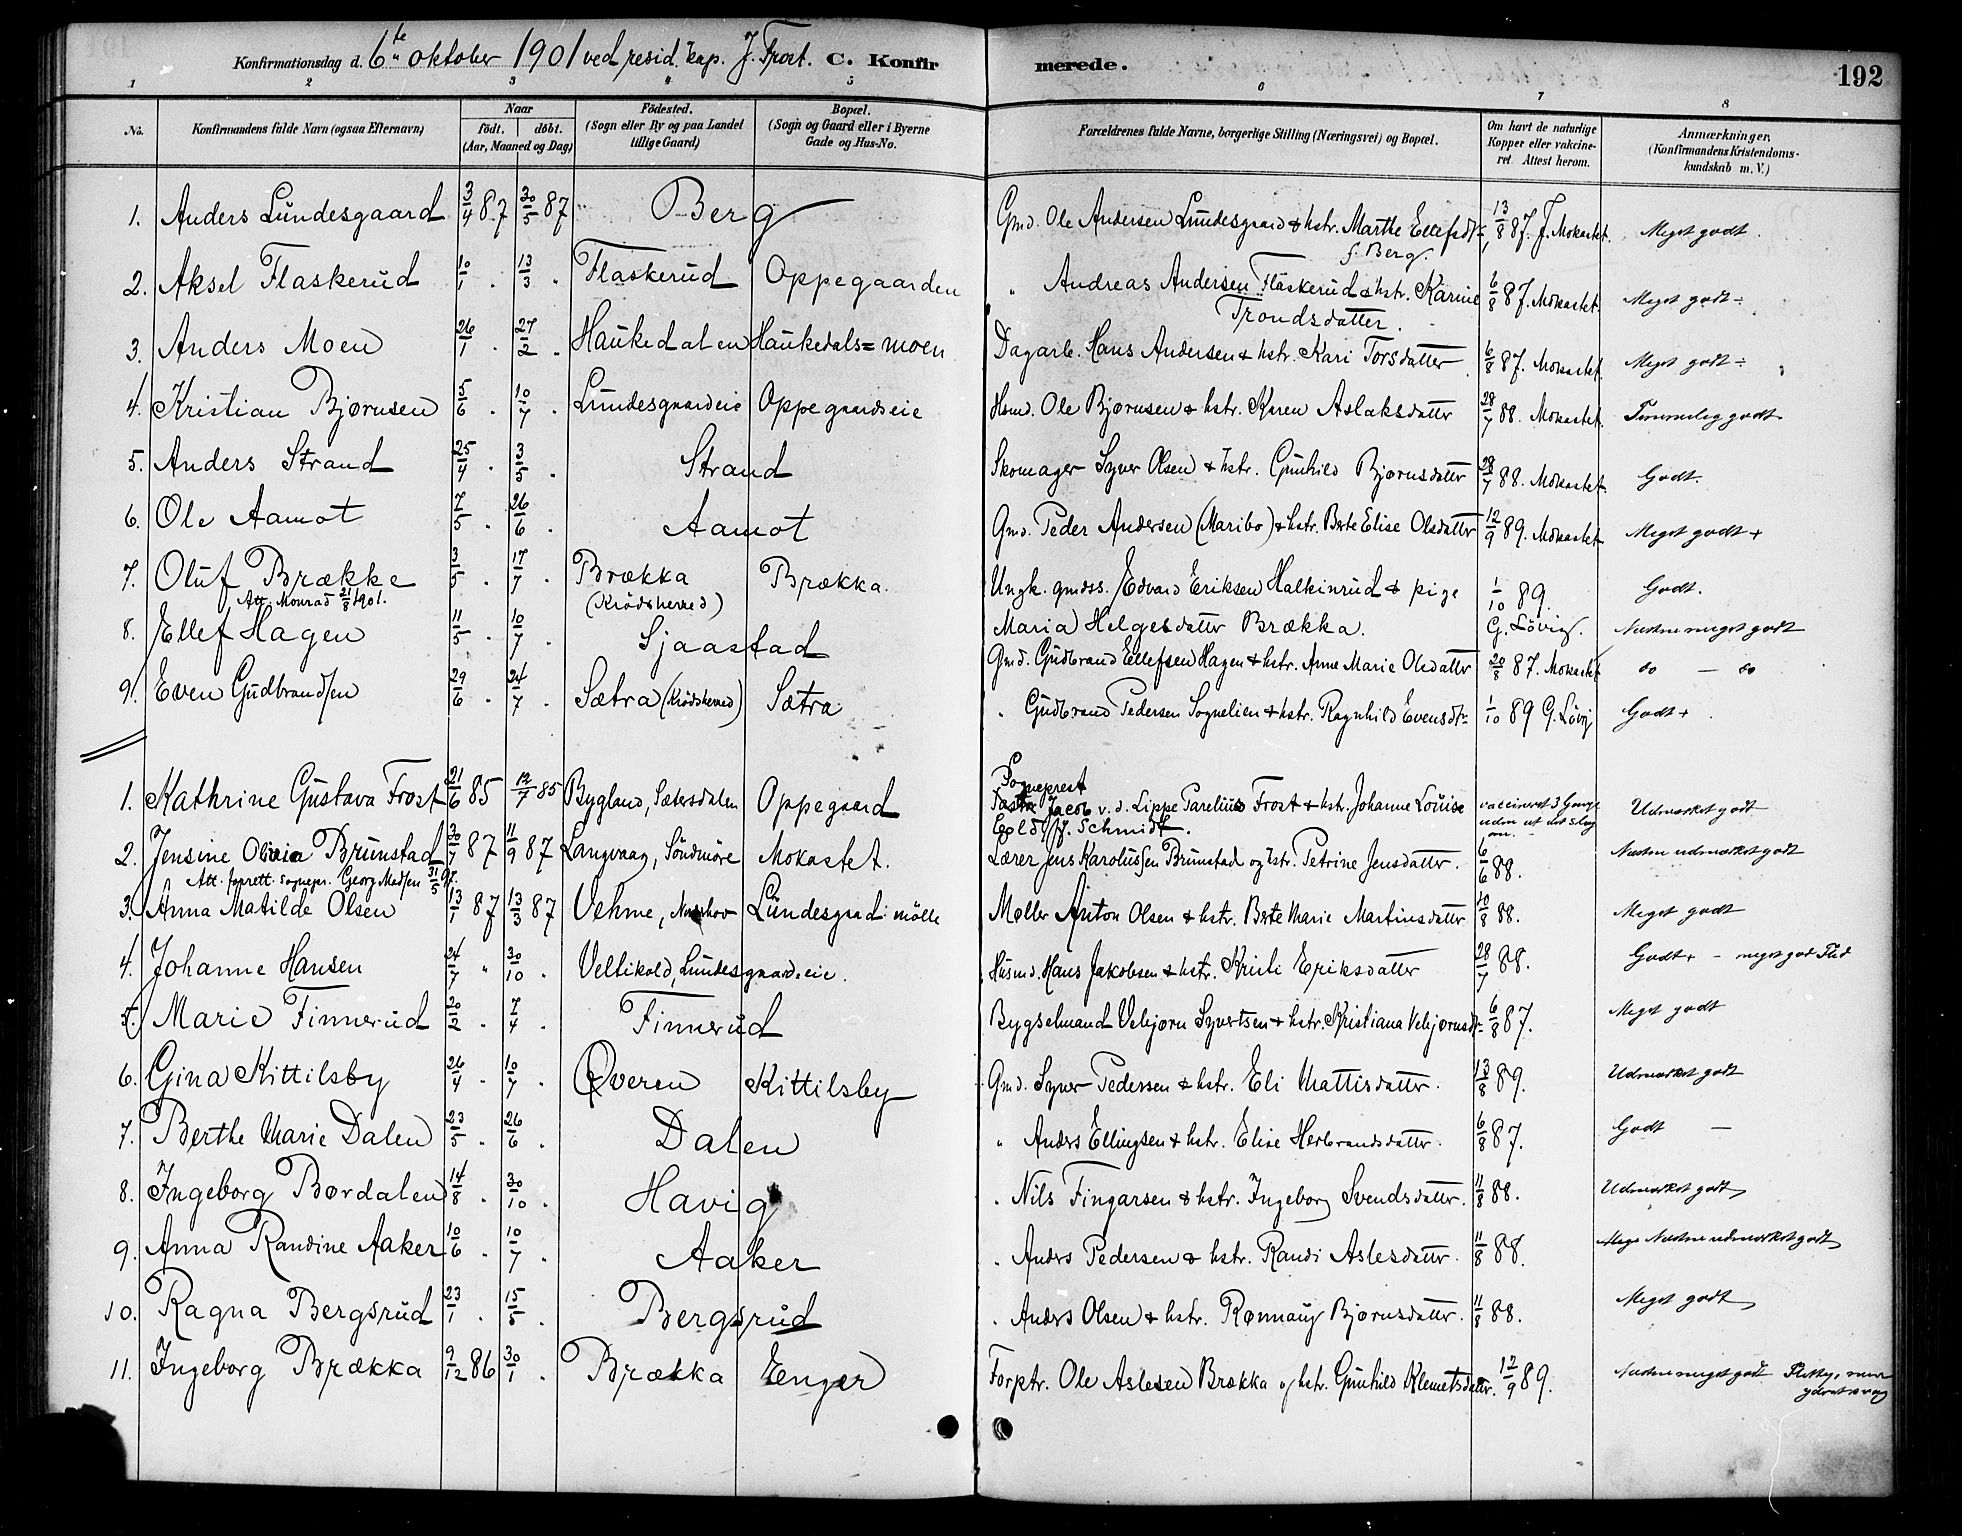 Konfirmationsdag d. 6te oktober 1901 ved resid. kap. J. Frost. C. Konfirmerede. 192
1 2 3 5 6 7 8
No. Konfirmandens fulde Navn (ogsaa Efternavn) Naar født. døbt. (Aar, Maaned og Dag) Födested. (Sogn eller By og paa Landet tillige Gaard) Bopæl. (Sogn og Gaard eller i Byerne Gade og Hus-No. Forældrenes fulde Navne, borgerlige Stilling (Næringsvei) og Bopæl. Om havt de naturlige Kopper eller vakcineret. Attest herom. Anmærkninger, (Konfirmandens Kristendomskundskab m. V.)
1. Anders Lundesgaard 3/4 87 30/5 87 Berg Gmd. Ole Andersen Lundesgaard & hstr. Marthe Ellefsdtr. f. Berg. 13/8 87. J. Mokastet. Meget godt.
2. Aksel Flaskerud 10/1 " 13/3 " Flaskerud Oppegaarden " Andreas Andersen Flaskerud & hstr. Karine Trondsdatter. 6/8 87. Mokastet. Meget godt ÷
3. Anders Moen 26/1 " 27/2 " Haukedalen Haukedals=moen Dagarb. Hans Andersen & hstr. Kari Torsdatter 6/8 87. Mokastet. Meget godt ÷
4. Kristian Bjørnsen 5/6 " 10/7 " Lundesgaardeie Oppegaardseie Hsmd. Ole Bjørnsen & hstr. Karen Aslaksdatter 28/7 88. Mokastet. Temmelig godt
5. Anders Strand 25/4 " 3/5 " Strand Skomager Syver Olsen & hstr. Gunhild Bjørnsdatter 28/7 88. Mokastet. Godt.
6. Ole Aamot 7/5 " 26/6 " Aamot Gmd. Peder Andersen (Maribo) & hstr. Berte Elise Olsdatter 12/9 89. Mokastet Meget godt +
7. Oluf Brække 3/5 " 17/7 " Brækka (Krödsherred) Brækka. Ungk. gmdss. Edvard Eriksen Halkinrud & pige Maria Helgesdatter Brækka. 1/10 89. G. Lövig. Godt.
Att. Monrad 21/8 1901.
8. Ellef Hagen 11/5 " 10/7 " Sjaastad Gmd. Gudbrand Ellefsen Hagen & hstr. Anne Marie Olsdatter 20/8 87. Mokastet Næsten meget godt
9. Even Gudbrandsen 29/6 " 24/7 " Sætra (Krödsherred) Sætra " Gudbrand Pedersen Sognelien & hstr. Ragnhild Evensdtr. 1/10 89 G. Lövig do — do
Godt +
1. Kathrine Gustava Frost 21/6 85 12/7 85 Bygland, Sætersdalen Oppegaard Sogneprest Jacob v. d. Lippe Parelius Frost & hstr. Johanne Louise f. Schmidt. vaccineret 3 Gange uden at det slog an. Udmærket godt
2. Jensine Olivia Brunstad 30/7 87 11/9 87 Langvaag, Söndmöre Mokastet. Lærer Jens Karolussen Brunstad og hstr. Petrine Jensdatter. 6/6 88. Næsten udmærket godt
Att. forrett. sognepr. Georg Madsen 31/5
3. Anna Matilde Olsen 13/1 87 13/3 87 Vehme, Lundesgaard mölle Møller Anton Olsen & hstr. Berte Marie Martinsdatter 10/8 88. Meget godt
4. Johanne Hansen 24/7 " 30/10 " Veltikold, Lundesgaardseie. Husmd. Hans Jakobsen & hstr. Kristi Eriksdatter 28/7 88. Godt + - meget god Flid
5. Marie Finnerud 20/2 " 7/4 " Finnerud Bygselmand Vebjørn Syvertsen & hstr. Kristiana Vebjørnsdtr. 6/8 87. Meget godt
6. Gina Kittilsby 26/4 " 10/7 " Øveren Kittilsby Gmd. Syver Pedersen & hstr. Eli Mattisdatter. 13/8 89. Udmærket godt
7. Berthe Marie Dalen 23/5 " 26/6 " Dalen " Anders Ellingsen & hstr. Elise Herbrandsdatter. 6/8 87. Godt —
8. Ingeborg Børdalen 14/8 " 30/10 " Havig " Nils Fingarsen & hstr. Ingeborg Svendsdatter. 11/8 88. Udmærket godt
9. Anna Randine Aaker 10/6 " 10/7 " Aaker " Anders Pedersen & hstr. Randi Aslesdatter. 11/8 88. Næsten udmærket godt
10. Ragna Bergsrud 23/1 " 15/5 " Bergsrud " Anders Olsen & hstr. Rønnaug Bjørnsdatter. 11/8 88. Meget godt
11. Ingeborg Brækka 9/12 86 30/1 " Brækka Enger Forptr. Ole Aslesen Brækka og hstr. Gunhild Klemetsdatter. 12/9 89. Næsten meget godt